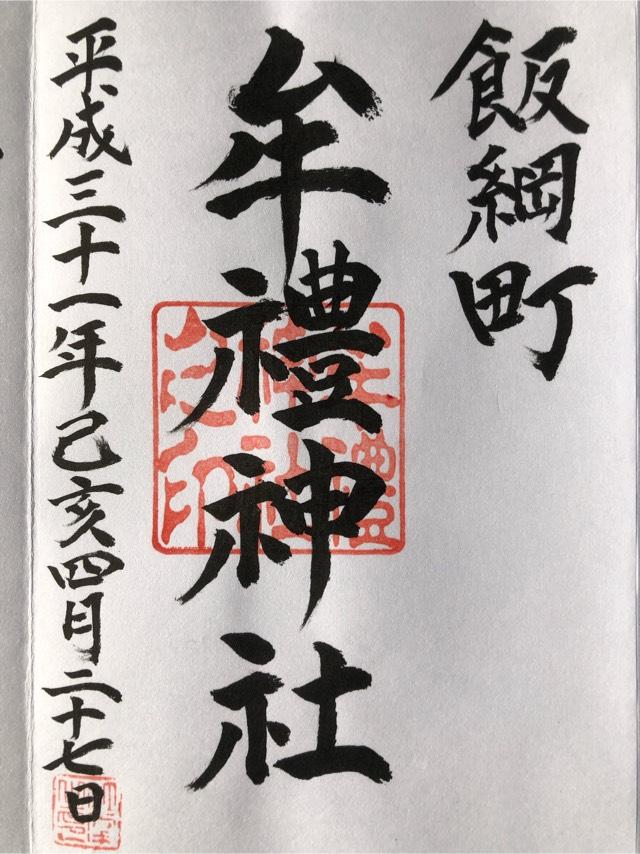 飯綱町
牟禮神社
平成三十一年己亥四月二十七日